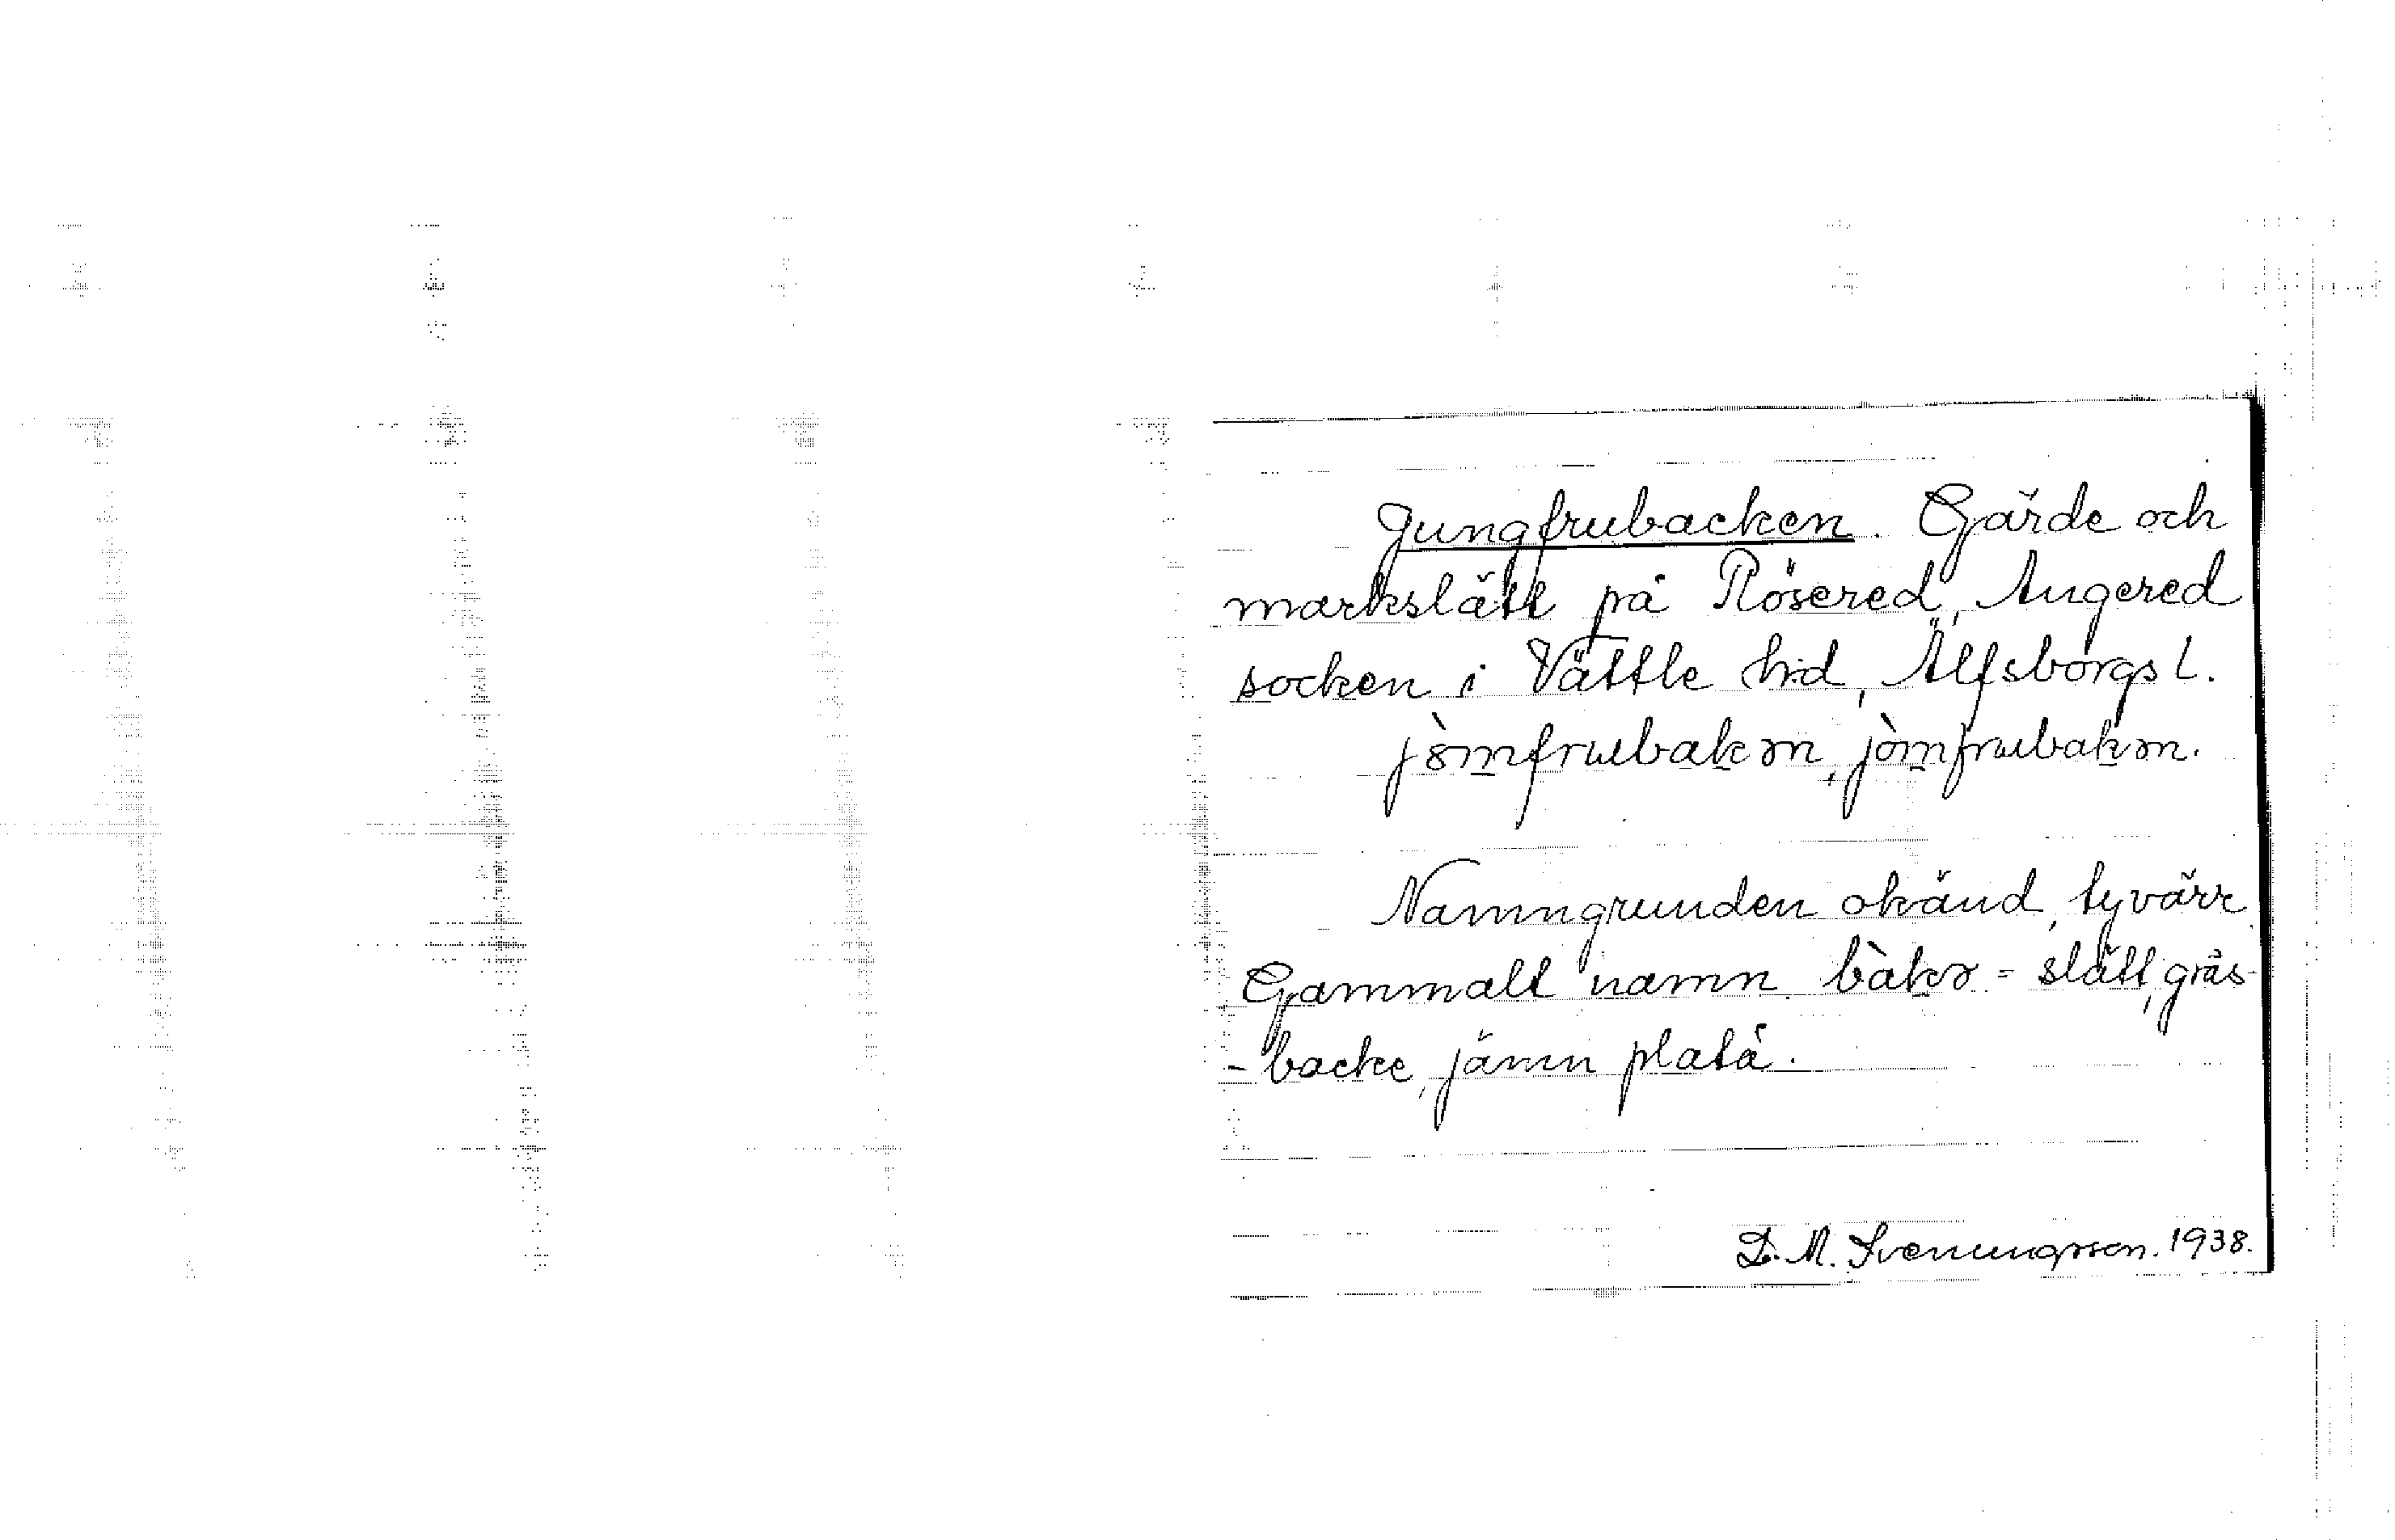 Jungfrubacken. Gärde och
markslätt på Rösered, Angered
socken i Vättle hd, Älfsborgs l.
jòmfrubakən, jòmfrubakən.
Namngrunden okänd, tyvärr.
Gammalt namn. bàkə = slätt, gräs-
-backe, jämn platå.
D. M. Svenungsson. 1938.